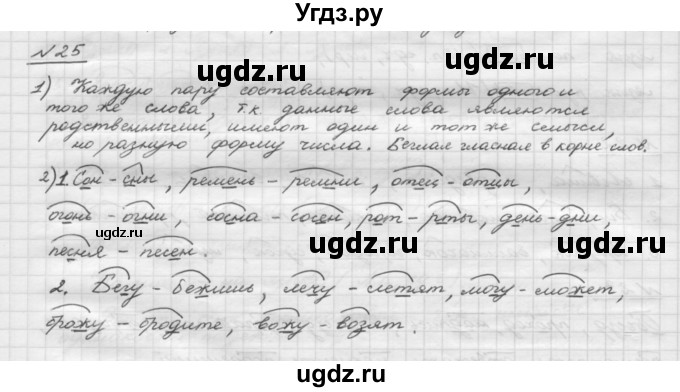 Угдз.ру
N25
1) Каждую пару составляют формы одного и
того же слова, т.к данные слова являются
родственными, имеют один и тот же смысл,
но разную форму числа. Беглая гласная в корне слов.
2) 1. Сон - сны, ремень - ремни, отец - отцы,
огонь - огни, сосна - сосен, рот - рты, день - дни,
песня - песен.
2. Бегу - бежишь, лечу - летят, могу - может,
брожу - бродите, вожу - возят.
Угдз.ру